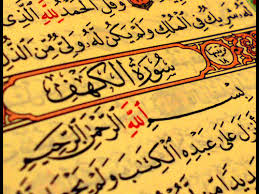 وَقُلِ الْحَمْدُ لِلَّهِ الَّذِي
لَهُ شَرِيكٌ فِي الْمُلْكِ وَلَمْ يَكُنْ لَهُ وَلِيٌّ مِنَ الذُّلِّ
سُورَةُ الْكَهْفِ
بِسْمِ اللَّهِ الرَّحْمَنِ الرَّحِيمِ
أَنْزَلَ عَلَى عَبْدِهِ الْكِتَابَ وَلَمْ